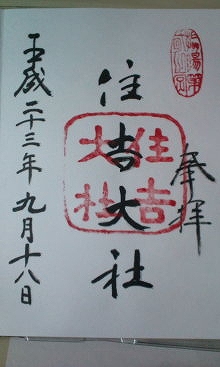 奉拝
住吉大社
住吉
大社
平成二十三年九月十八日